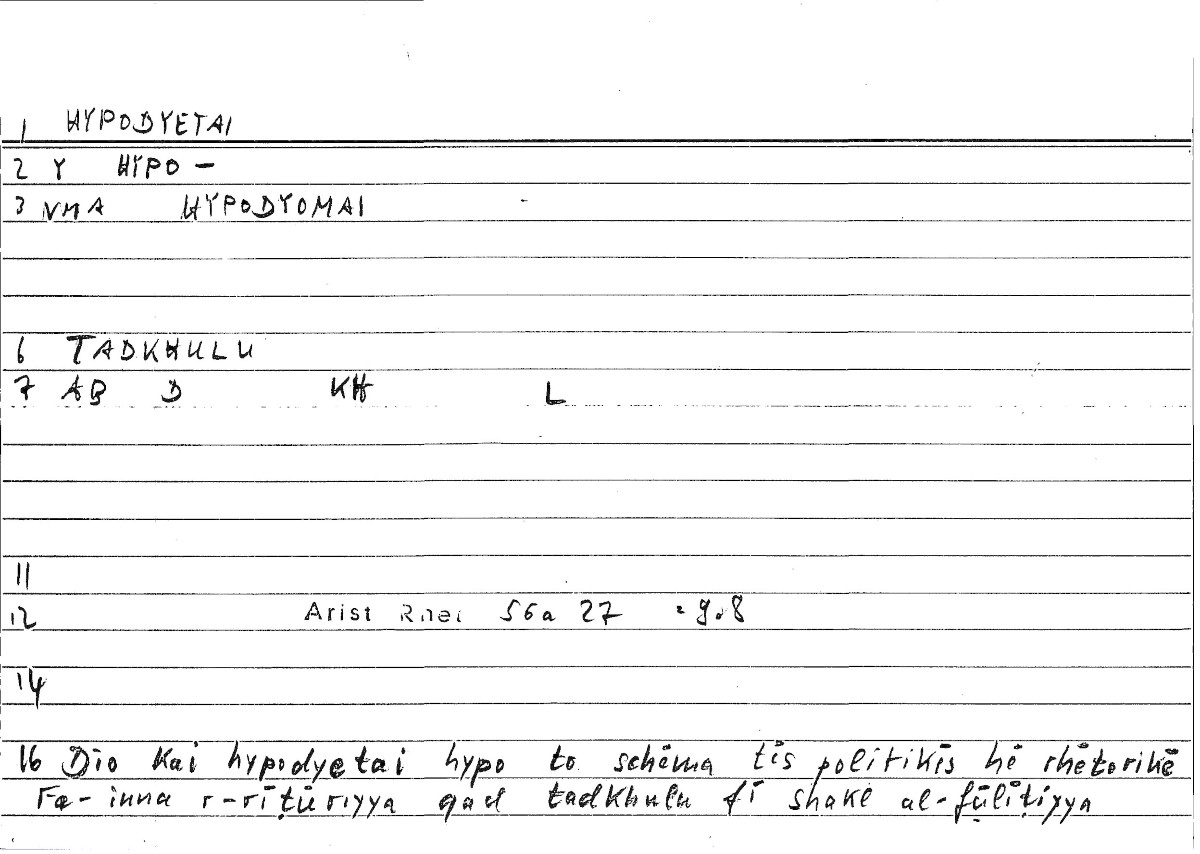 1 HYPODYETAI
2 Y HYPO -
3 VMA HYPODYOMAI
6 TADKHULU
7 AB D KH L
11
12 Arist Rhet 56a 27 = 9.8
14
16 Dio kai hypodyetai hypo to schēma tēs politikēs hē rhētorikē
Fa-inna r-rīṭūriyya qad tadkhulu fī shakl al-fūlīṭiyya